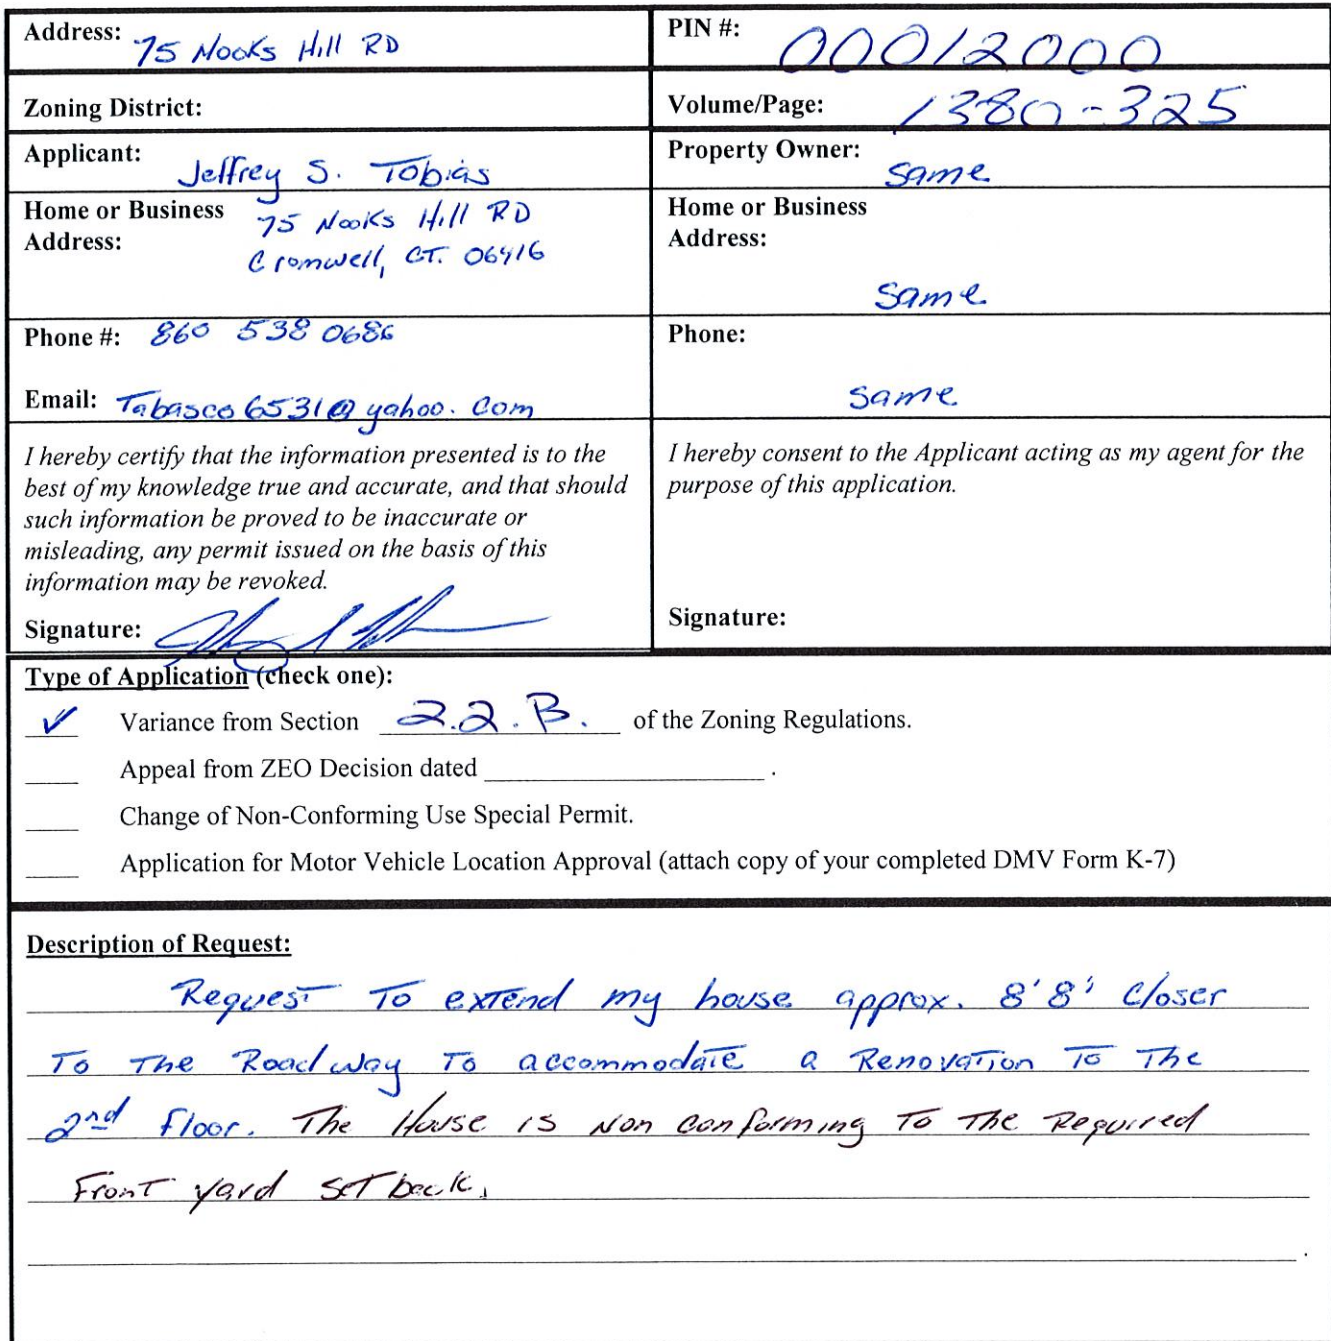 Address: 75 Nooks Hill RD
PIN #: 00012000
Zoning District:
Volume/Page: 1380-325
Applicant: Jeffrey S. Tobias
Property Owner: same
Home or Business 75 Nooks Hill RD
Address: Cromwell, CT. 06416
Home or Business
Address:
same
Phone #: 860 538 0686
Phone:
Email: Tabasco6531@yahoo.com
same
I hereby certify that the information presented is to the
best of my knowledge true and accurate, and that should
such information be proved to be inaccurate or
misleading, any permit issued on the basis of this
information may be revoked.
Signature:
I hereby consent to the Applicant acting as my agent for the
purpose of this application.
Signature:
Type of Application (check one):
✓ Variance from Section 2.2.B. of the Zoning Regulations.
____ Appeal from ZEO Decision dated ____ .
____ Change of Non-Conforming Use Special Permit.
____ Application for Motor Vehicle Location Approval (attach copy of your completed DMV Form K-7)
Description of Request:
Request To extend my house approx. 8'8' closer
To The Roadway To accommodate a Renovation To The
2nd floor. The House is Non conforming To The Required
Front yard setback.